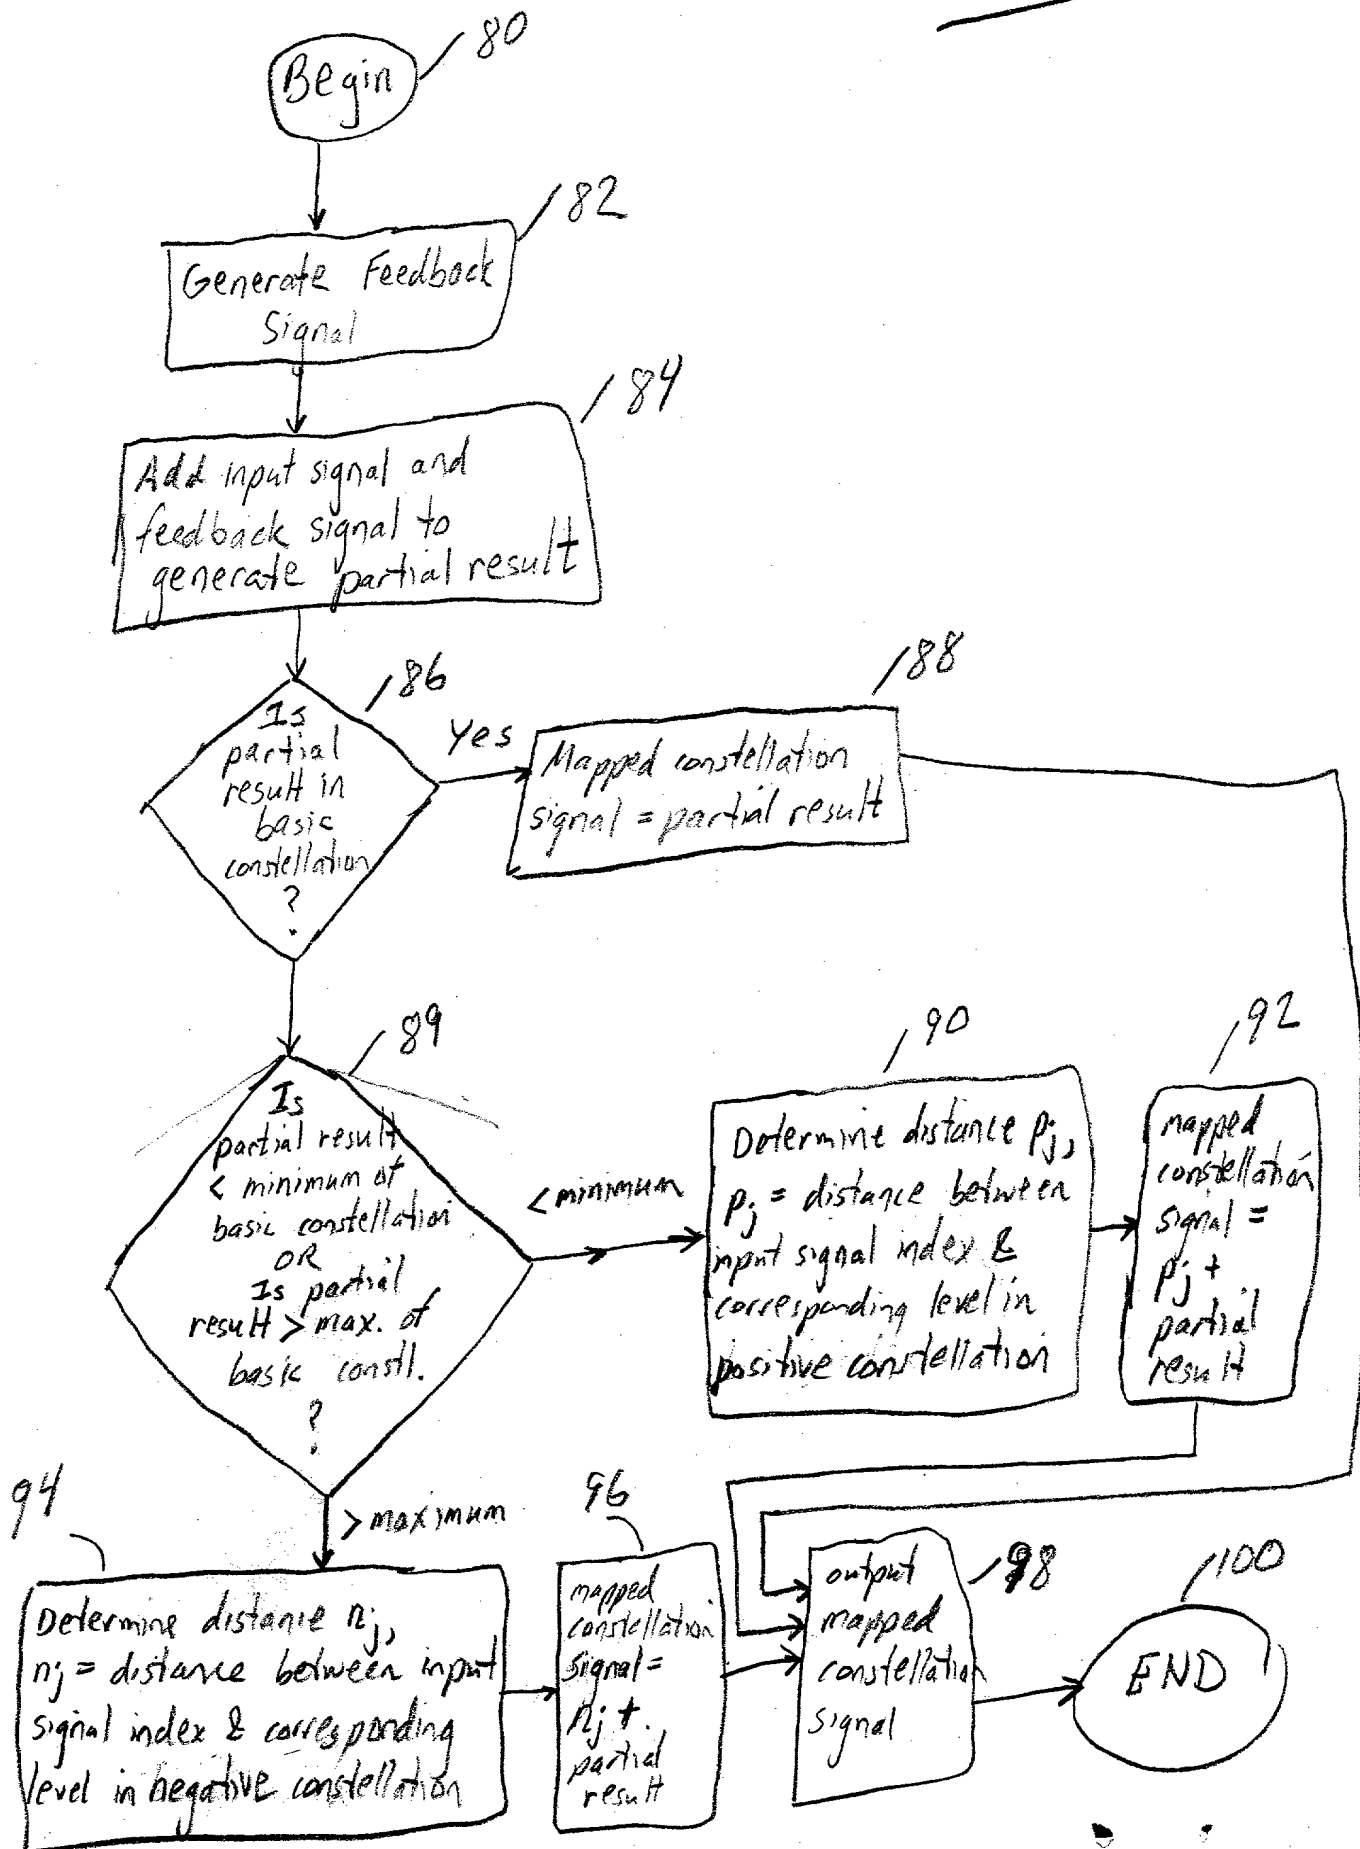 Begin
80
82
Generate Feedback
Signal
84
Add input signal and
feedback signal to
generate partial result
86
Is
partial
result in
basic
constellation
?
Yes
88
Mapped constellation
signal = partial result
89
Is
partial result
< minimum of
basic constellation
OR
Is partial
result > max. of
basic constl.
?
< minimum
90
Determine distance pj,
pj = distance between
input signal index &
corresponding level in
positive constellation
92
mapped
constellation
signal =
pj +
partial
result
> maximum
94
Determine distance nj,
nj = distance between input
signal index & corresponding
level in negative constellation
96
mapped
constellation
signal =
nj +
partial
result
98
output
mapped
constellation
signal
100
END